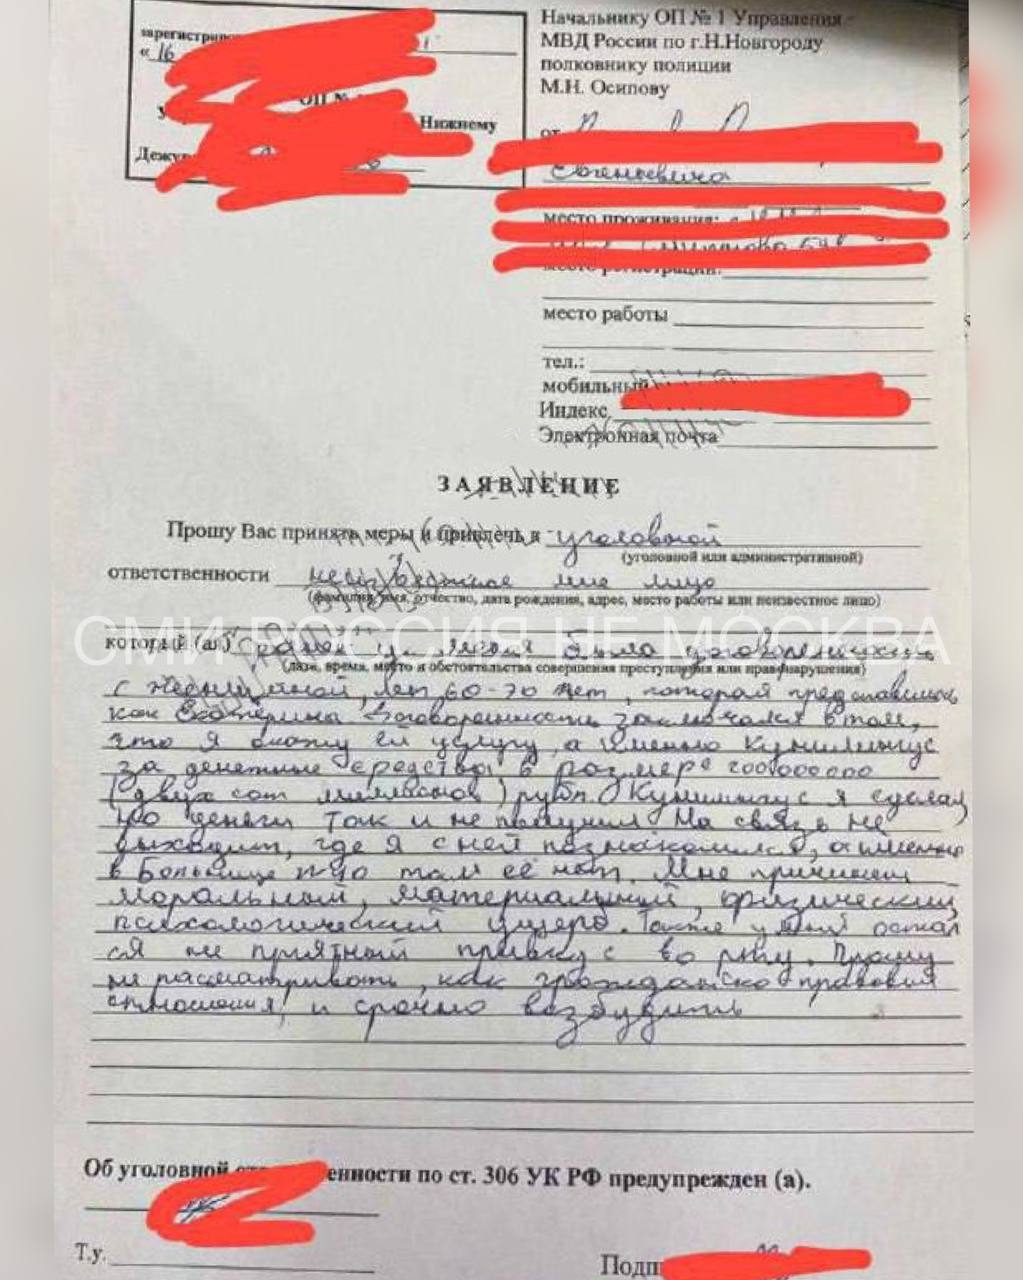 зарегистриро
« 16
ОП №
Нижнему
Дежу
Начальнику ОП № 1 Управления
МВД России по г.Н.Новгороду
полковнику полиции
М.Н. Осипову
от
Евгеньевича
место проживания:
место регистрации:
место работы
тел.:
мобильный
Индекс
Электронная почта
ЗАЯВЛЕНИЕ
Прошу Вас принять меры и привлечь к уголовной
(уголовной или административной)
ответственности неизвестное мне лицо
(фамилия, имя, отчество, дата рождения, адрес, место работы или неизвестное лицо)
СМИ РОССИЯ НЕ МОСКВА
который (ая) ранее у меня была договоренность
(дата, время, место и обстоятельства совершения преступления или правонарушения)
с женщиной, лет 60-70 лет, которая представилась
как Екатерина Договоренность заключался в том,
что я окажу ей услугу, а именно Кунилингус
за денежные средства в размере 200000000
(двух сот миллионов) рубл. Кунилингус я сделал
но деньги так и не получил На связь не
выходит, где я с ней познакомился, а именно
в Больнице то там её нет. Мне причинен
моральный, материальный, физический,
психологический ущерб. Также у меня остал
ся не приятный привкус во рту. Прошу
не рассматривать, как гражданско правовые
отношения, и срочно возбудить
Об уголовной енности по ст. 306 УК РФ предупрежден (а).
Т.у.
Подп